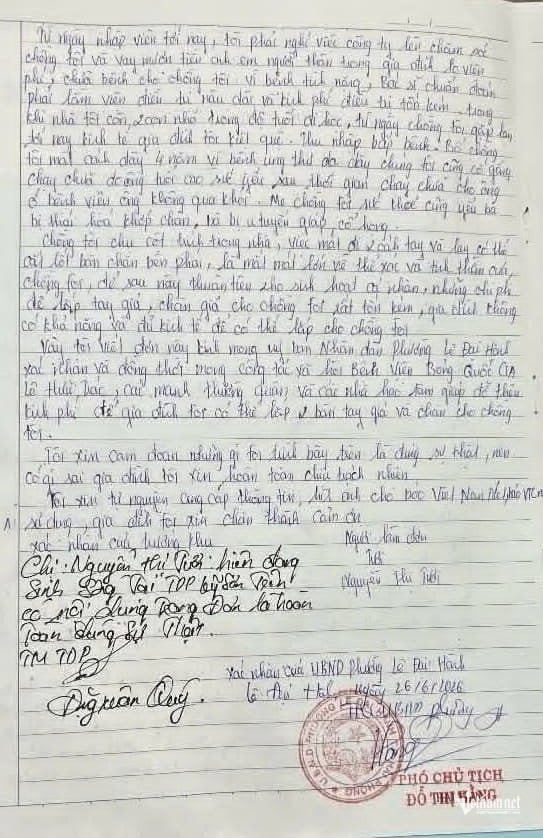 Từ ngày nhập viện tới nay, tôi phải nghỉ việc công ty lên chăm sóc
chồng tôi và vay mượn tiền anh em người thân trong gia đình lo viện
phí chữa bệnh cho chồng tôi vì bệnh tình nặng, Bác sĩ chuẩn đoán
phải nằm viện điều trị lâu dài và kinh phí điều trị tốn kém. trong
khi nhà tôi còn 2 con nhỏ trong độ tuổi đi học, từ ngày chồng tôi gặp nạn
tới nay kinh tế gia đình tôi kiệt quệ. Thu nhập bấp bênh. Bố chồng
tôi mất cách đây 4 năm vì bệnh ung thư dạ dày chúng tôi cũng cố gắng
chạy chữa do ông tuổi cao sức yếu sau thời gian chạy chữa cho ông
ở bệnh viện ông không qua khỏi. Mẹ chồng tôi sức khỏe cũng yếu bà
bị thoái hóa khớp chân, và bị u tuyến giáp, cổ họng.
Chồng tôi trụ cột chính trong nhà, việc mất đi 2 cánh tay và lay có thể
cắt lốt bàn chân bên phải, là mất mát lớn về thể xác và tinh thần của
chồng tôi, để sau này thuận tiện cho sinh hoạt cá nhân, nhưng chi phí
để lắp tay giả, chân giả, cho chồng tôi rất tốn kém, gia đình không
có khả năng và đủ kinh tế để có thể lắp cho chồng tôi
Vậy tôi viết đơn này kính mong uỷ ban Nhân dân Phường Lê Đại Hành
xác nhận và đồng thời phòng công tác xã hội Bệnh Viện Bỏng Quốc Gia
Lê Hữu Trác, các mạnh thường quân, và các nhà hảo tâm giúp đỡ thêm
kinh phí để gia đình tôi có thể lắp 2 bàn tay giả và chân cho chồng
tôi.
Tôi xin cam đoan những gì tôi trình bày trên là đúng sự thật, nếu
có gì sai gia đình tôi xin hoàn toàn chịu trách nhiên
Tôi xin tự nguyện cung cấp thông tin, hình ảnh cho báo Việt Nam Nét, báo VTCN
sử dụng, gia đình tôi xin chân thành cảm ơn
xác nhận của trưởng khu
Người làm đơn
Tươi
Nguyễn Thị Tươi
Chị: Nguyễn Thị Tươi hiện đang
Sinh sống Tại TDP
có nội dung Trong Đơn là hoàn
Toàn đúng sự Thật.
TM TDP
Đặng Xuân Quý.
xác nhận của UBND Phường Lê Đại Hành
Lê Đại Hành ngày 26/6/2026
PHÓ CHỦ TỊCH
ĐỖ THỊ HẰNG
Vietnamnet